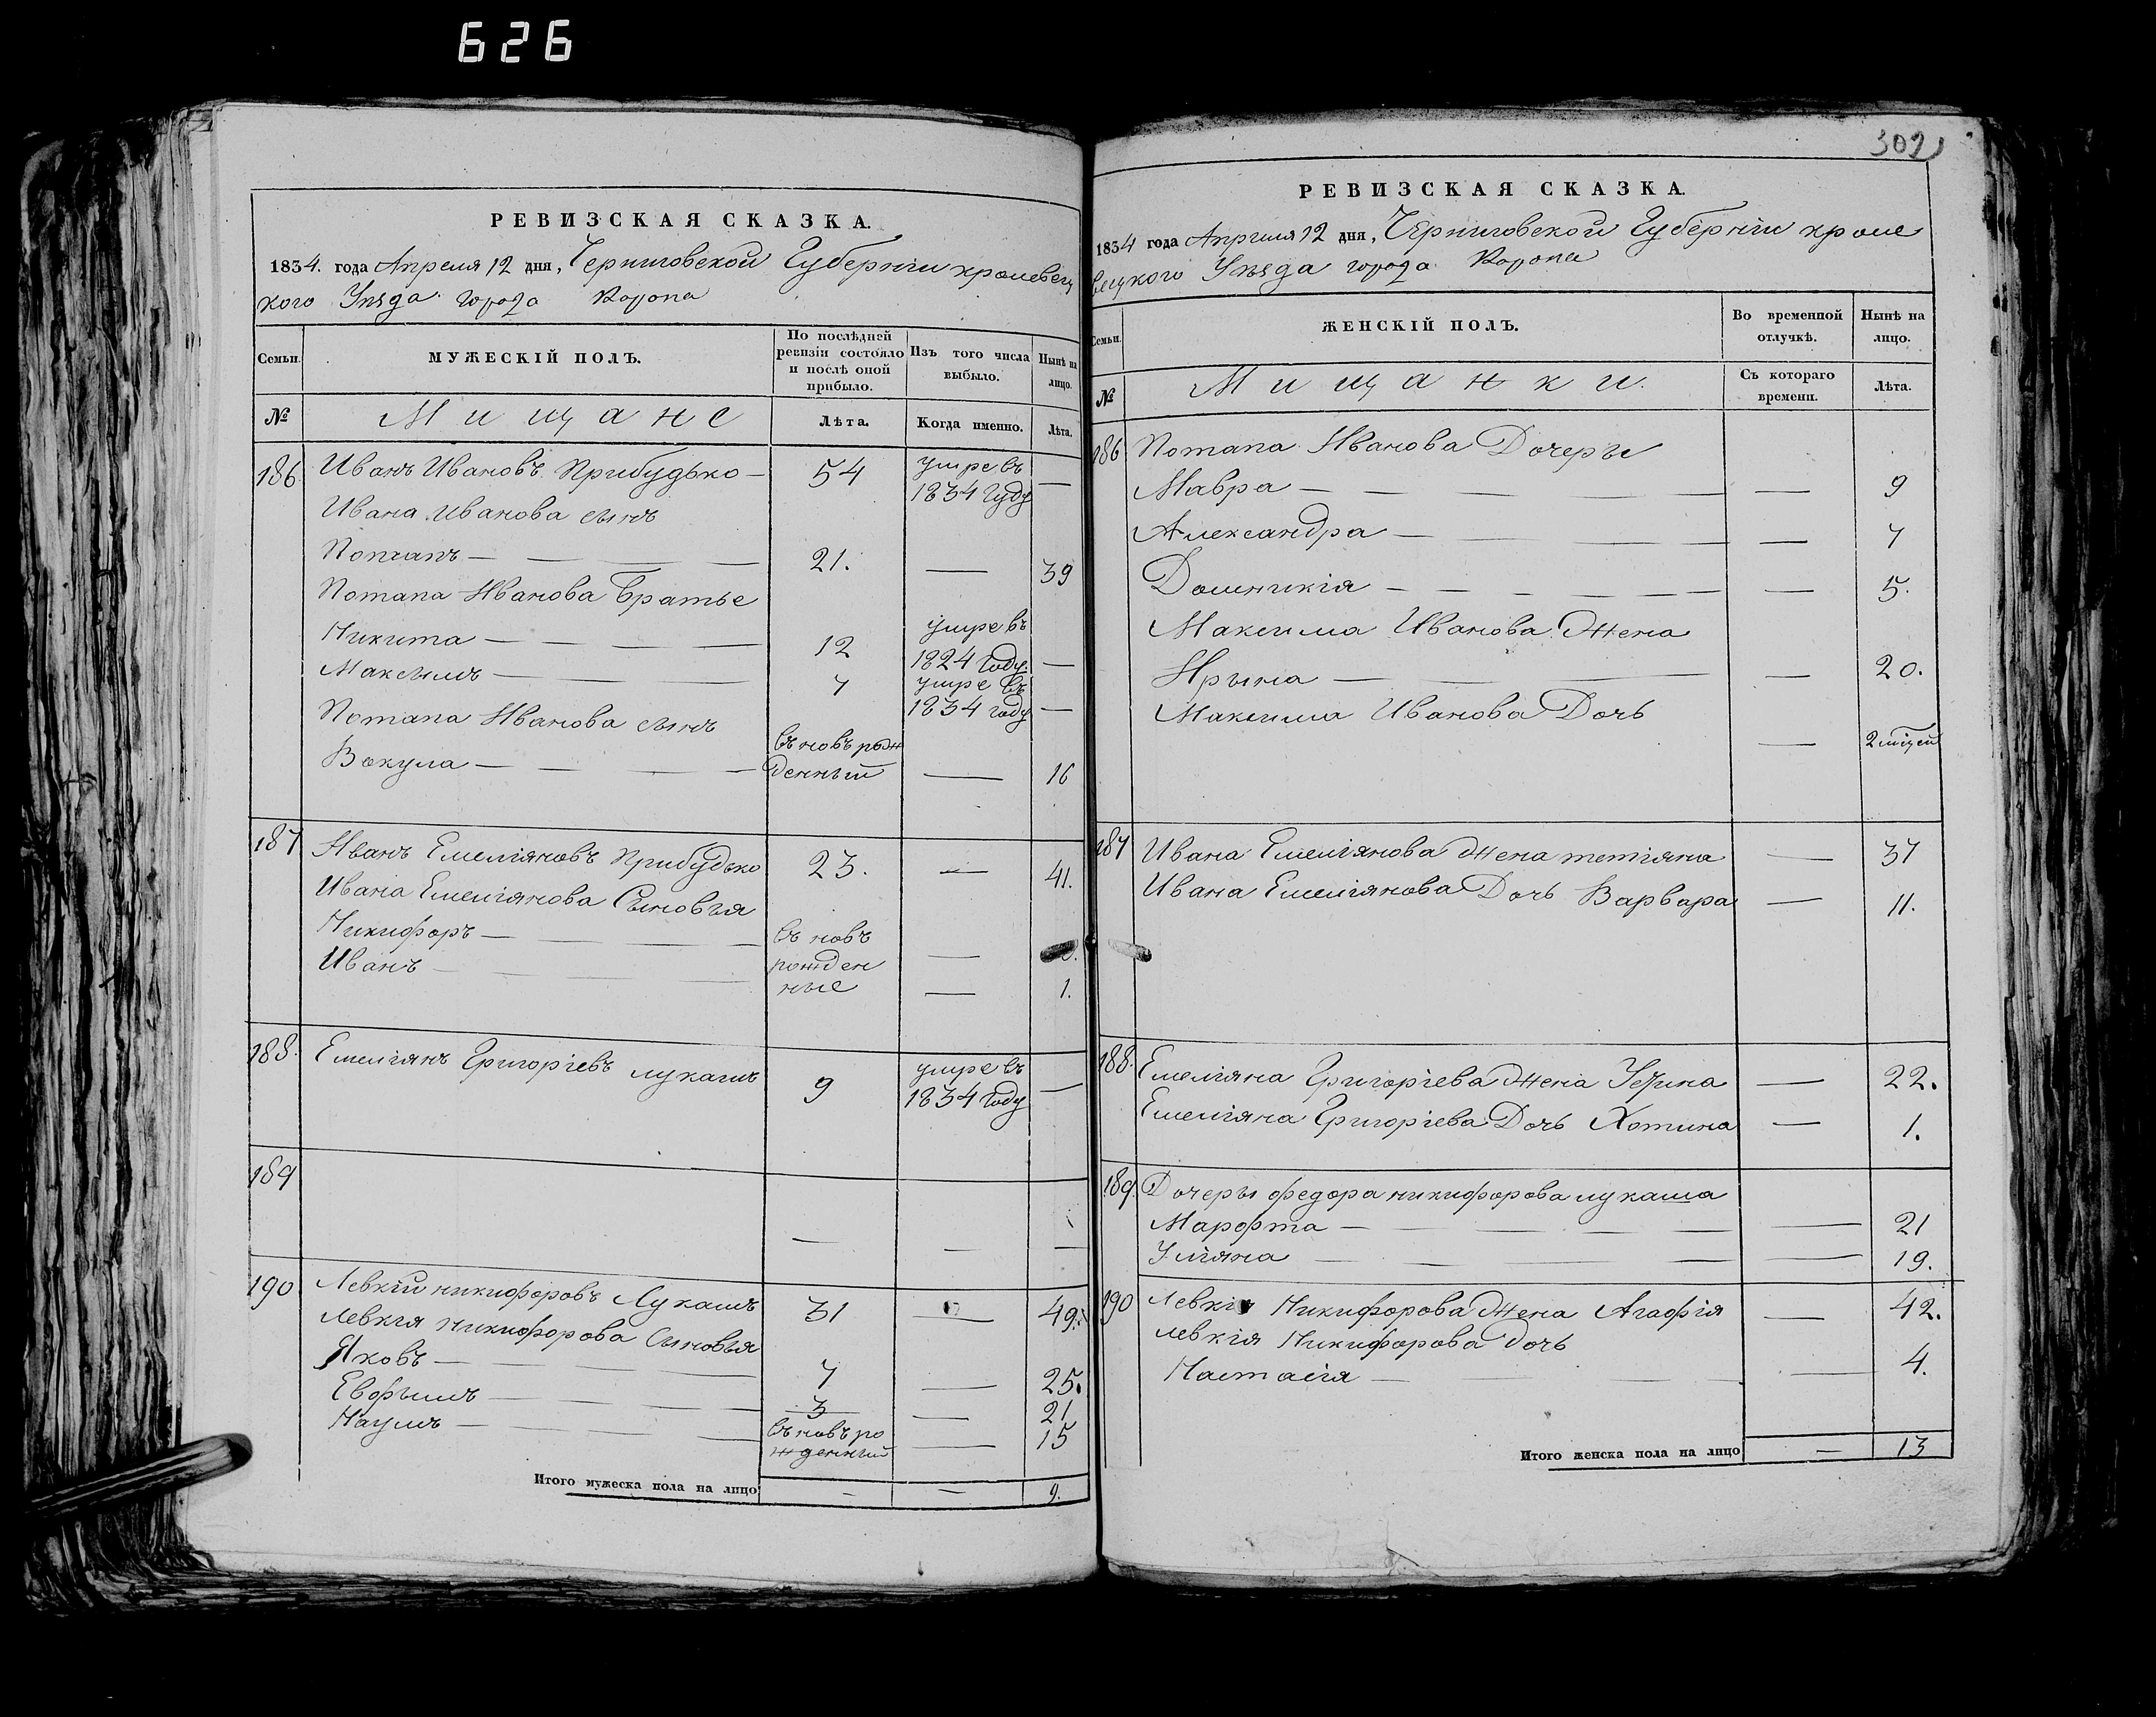 626
РЕВИЗСКАЯ СКАЗКА.
1834. года Апреля 12 дня, Черниговской Губерніи кролевец
кого Уѣзда города Коропа
Семьи.
МУЖЕСКІЙ ПОЛЪ.
По послѣдней ревизіи состояло и послѣ оной прибыло.
Изъ того числа выбыло.
Нынѣ на лицо.
№
Мищане
Лѣта.
Когда именно.
Лѣта.
186 Иванъ Ивановъ Прибудько — 54 умре въ 1834 Году —
Ивана Иванова сынъ
Потапъ — 21. — 39
Потапа Иванова Братье
Никита — 12 умре въ 1824 Году. —
Максымъ — 7 умре въ 1834 году —
Потапа Иванова сынъ
Вокула — въ новъ рож
денный — 16
187 Иванъ Емеліяновъ Прибудько 23. — 41.
Ивана Емеліянова Сыновъя
Никифоръ — въ новъ —
Иванъ — рожден
ные — 1.
188. Емеліянъ Григоріевъ лукашъ 9 умре въ 1834 Году —
189 — — —
190 Левкій никифоровъ Лукашъ 31 — 49.
Левкія никифорова Сыновья
Яковъ — 7 — 25.
Евфымъ — 3 — 21
Наумъ — въ новъ ро
жденный — 15
Итого мужеска пола на лицо — — 9.
302
РЕВИЗСКАЯ СКАЗКА.
1834 года Априля 12 дня, Черниговской Губерніи кроле
вецкого Уѣзда города Коропа
Семьи.
ЖЕНСКІЙ ПОЛЪ.
Во временной отлучкѣ.
Нынѣ на лицо.
№
Мищанки.
Съ котораго времени.
Лѣта.
186 Потапа Иванова Дочеры
Мавра — — 9
Александра — — 7
Домникія — — 5.
Максима Иванова Жена
Ирына — — 20.
Максима Иванова Дочь
— 2 міцей
187 Ивана Емеліянова Жена тетіяна — 37
Ивана Емеліянова Дочь Варвара — 11.
188. Емеліяна Григоріева Жена — 22.
Емеліяна Григоріева Дочь Хотина — 1.
189. Дочеры федора никифорова лукаша
Марфта — — 21
Уліяна — — 19.
190 Левкія Никифорова Жена Агафія — 42.
левкія Никифорова дочь
Настасія — — 4.
Итого женска пола на лицо — 13